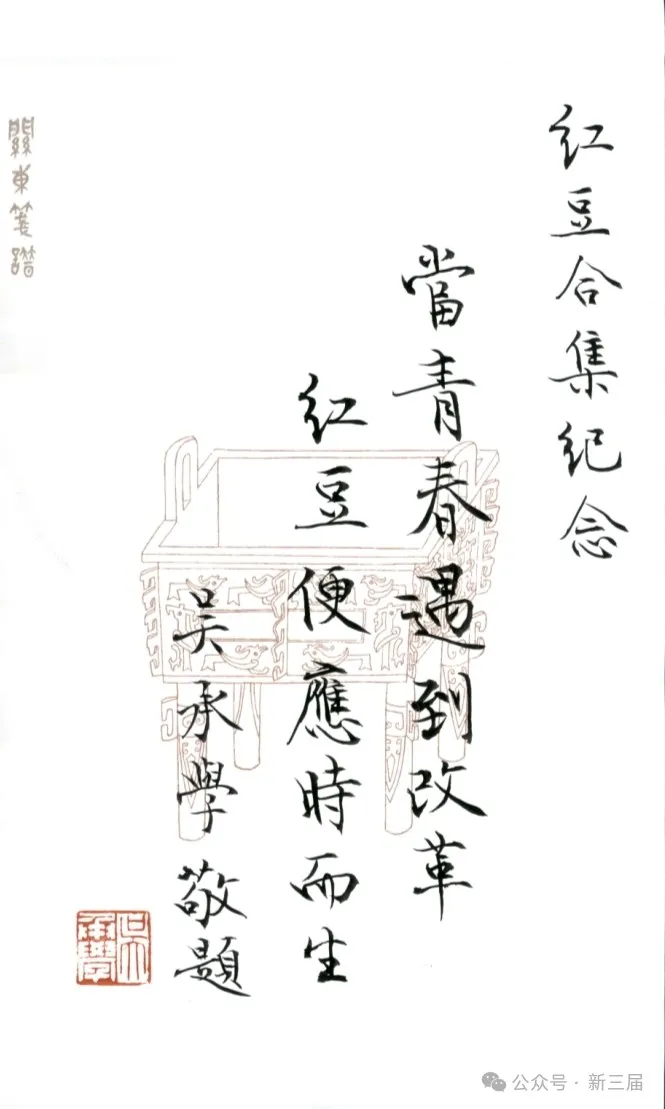 红豆合集纪念
當青春遇到改革
红豆便應時而生
吴承學敬題
吴承學
關東箋譜
公众号·新三届